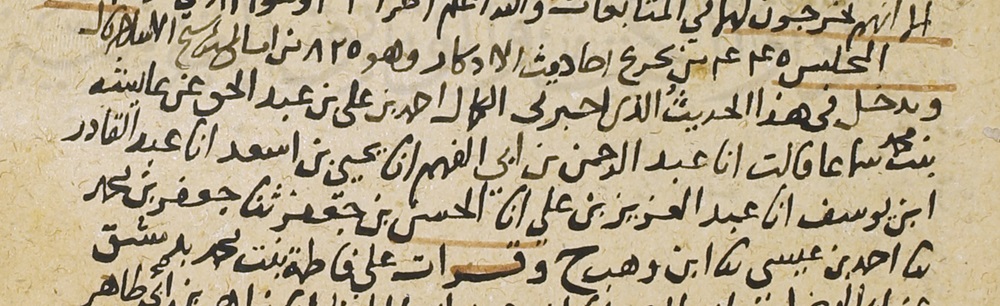 الا انهم يخرجون لهما في المتابعات والله اعلم اخر
المجلس من تخريج احاديث الاذكار وهو ٨٢٥ من
ويدخل في هذا الحديث الذي اخبرني الكمال احمد بن علي بن عبد الحق عن عايشة
بنت محمد سماعا قالت انا عبد الرحمن بن ابي الفهم انا يحيى بن اسعد انا عبد القادر
ابن يوسف انا عبد العزيز بن علي انا الحسن بن جعفر ثنا جعفر بن محمد
ثنا احمد بن عيسى ثنا ابن وهب ح وقرات على فاطمة بنت محمد بدمشق
بن ابي طاهر